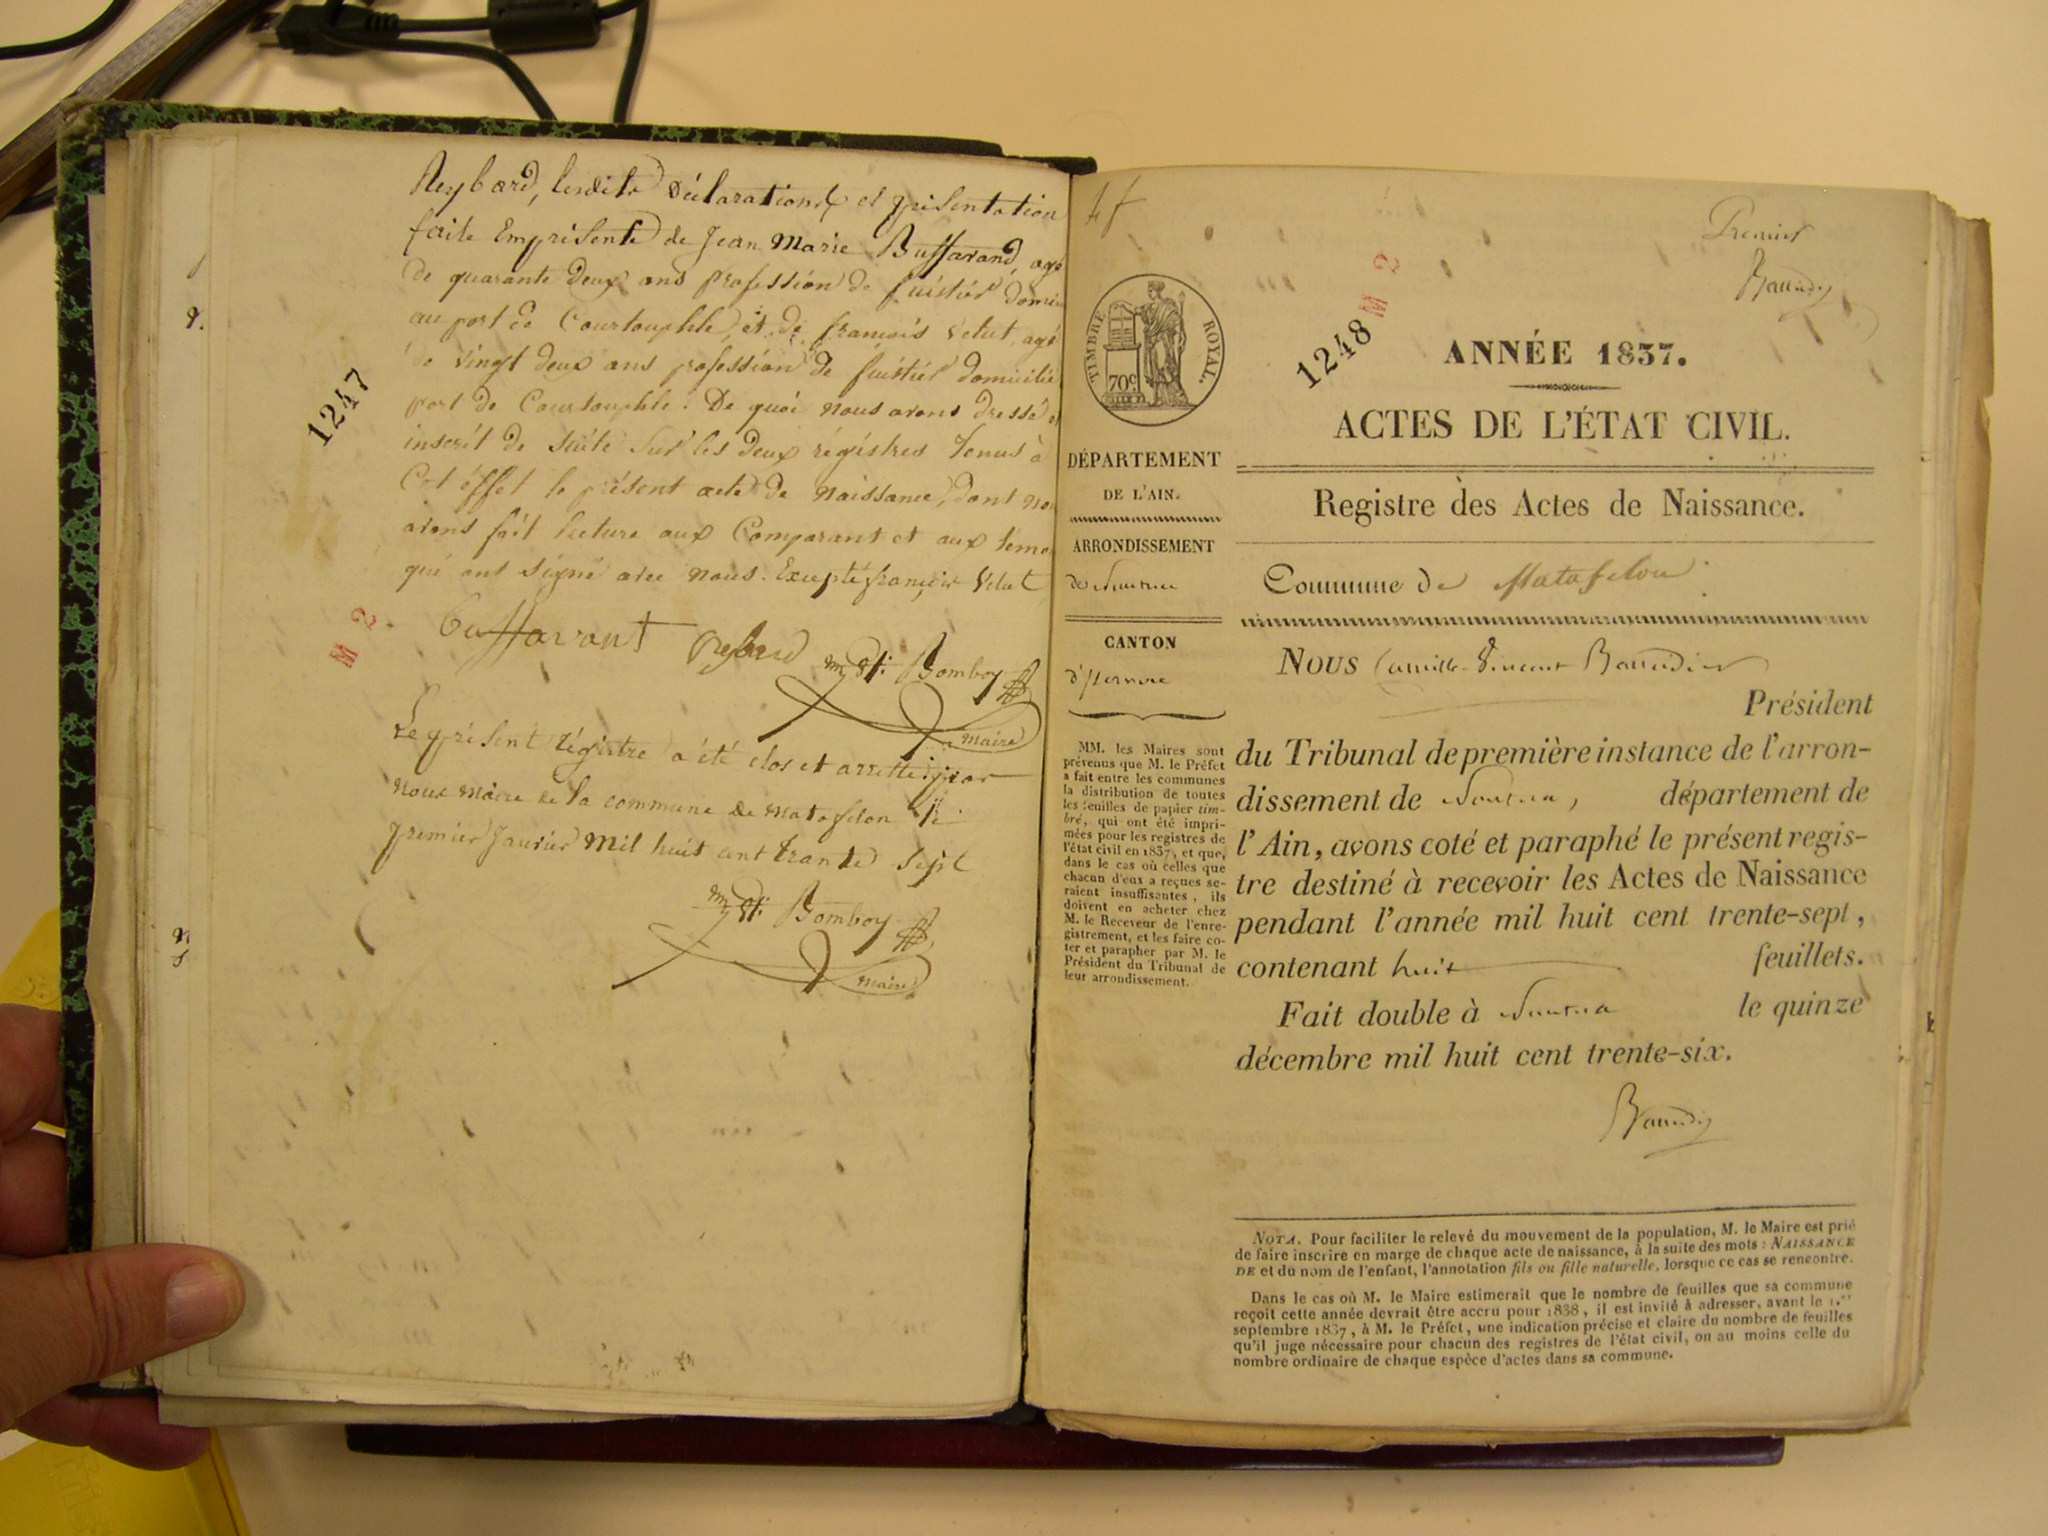 Reybard, lesdites Déclarations et présentation
faite En présente de Jean Marie Buffavand, agé
de quarante Deux ans profession de fuistier domici
au port de Courtouphle, et de francois Vetut, agé
de vingt deux ans profession de fuistier domicilié
port de Courtouphle. De quoi nous avons dressé et
inscrit de suite Sur les deux régistres tenus à
Cet éffet le présent acte de naissance, dont nou
avons fait lecture aux Comparant et aux temo
qui ont signé avec nous. Excepté françois Vetut
Buffavant Reybard mJSt. Bomboy
maire
Le présent régistre a été clos et arretté par
nous maire de la commune de matafelon le
premier Janvier mil huit cent trante Sept
Bomboy
maire
1247
M 2
Premier
Baudin
1248
M 2
TIMBRE ROYAL.
70c
ANNÉE 1837.
ACTES DE L'ÉTAT CIVIL.
Registre des Actes de Naissance.
DÉPARTEMENT
DE L'AIN.
ARRONDISSEMENT
de Nantua
CANTON
d'Izernore
MM. les Maires sont
prévenus que M. le Préfet
a fait entre les communes
la distribution de toutes
les feuilles de papier tim-
bré, qui ont été impri-
mées pour les registres de
l'état civil en 1837, et que,
dans le cas où celles que
chacun d'eux a reçues se-
raient insuffisantes, ils
doivent en acheter chez
M. le Receveur de l'enre-
gistrement, et les faire co-
ter et parapher par M. le
Président du Tribunal de
leur arrondissement.
Commune de Matafelon
NOUS Camille Vincent Baudin
Président
du Tribunal de première instance de l'arron-
dissement de Nantua, département de
l'Ain, avons coté et paraphé le présent regis-
tre destiné à recevoir les Actes de Naissance
pendant l'année mil huit cent trente-sept,
contenant huit feuillets.
Fait double à Nantua le quinze
décembre mil huit cent trente-six.
Baudin
NOTA. Pour faciliter le relevé du mouvement de la population, M. le Maire est prié
de faire inscrire en marge de chaque acte de naissance, à la suite des mots : NAISSANCE
DE et du nom de l'enfant, l'annotation fils ou fille naturelle, lorsque ce cas se rencontre.
Dans le cas où M. le Maire estimerait que le nombre de feuilles que sa commune
reçoit cette année devrait être accru pour 1838, il est invité à adresser, avant le 1.er
septembre 1837, à M. le Préfet, une indication précise et claire du nombre de feuilles
qu'il juge nécessaire pour chacun des registres de l'état civil, ou au moins celle du
nombre ordinaire de chaque espèce d'actes dans sa commune.